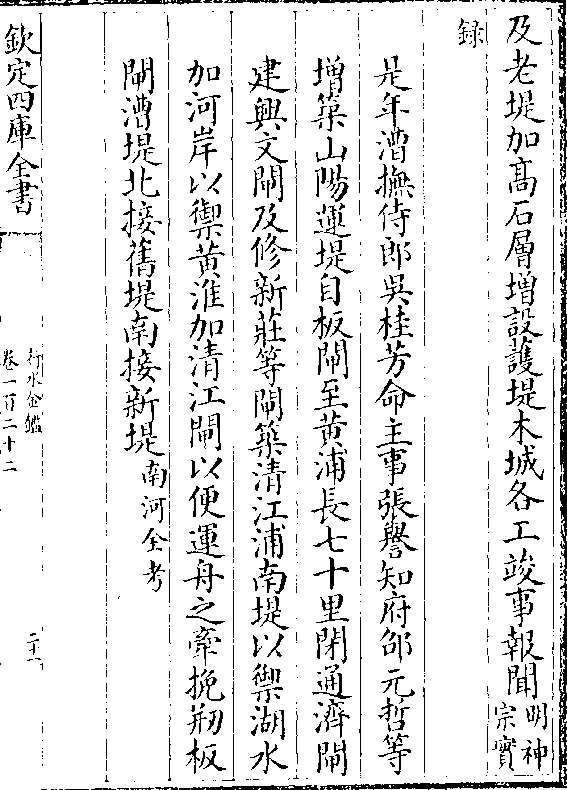 及老堤加髙石層增設護堤木城各工竣事報聞明神宗實
録
是年漕撫侍郎吳桂芳命主事張譽知府邵元哲等
增築山陽運堤自板閘至黄浦長七十里閉通濟閘
建興文閘及修新莊等閘築清江浦南堤以禦湖水
加河岸以禦黄淮加清江閘以便運舟之牽挽剏板
閘漕堤北接舊堤南接新堤南河全考
欽定四庫全書
行水金鑑
卷一百二十二
二十一